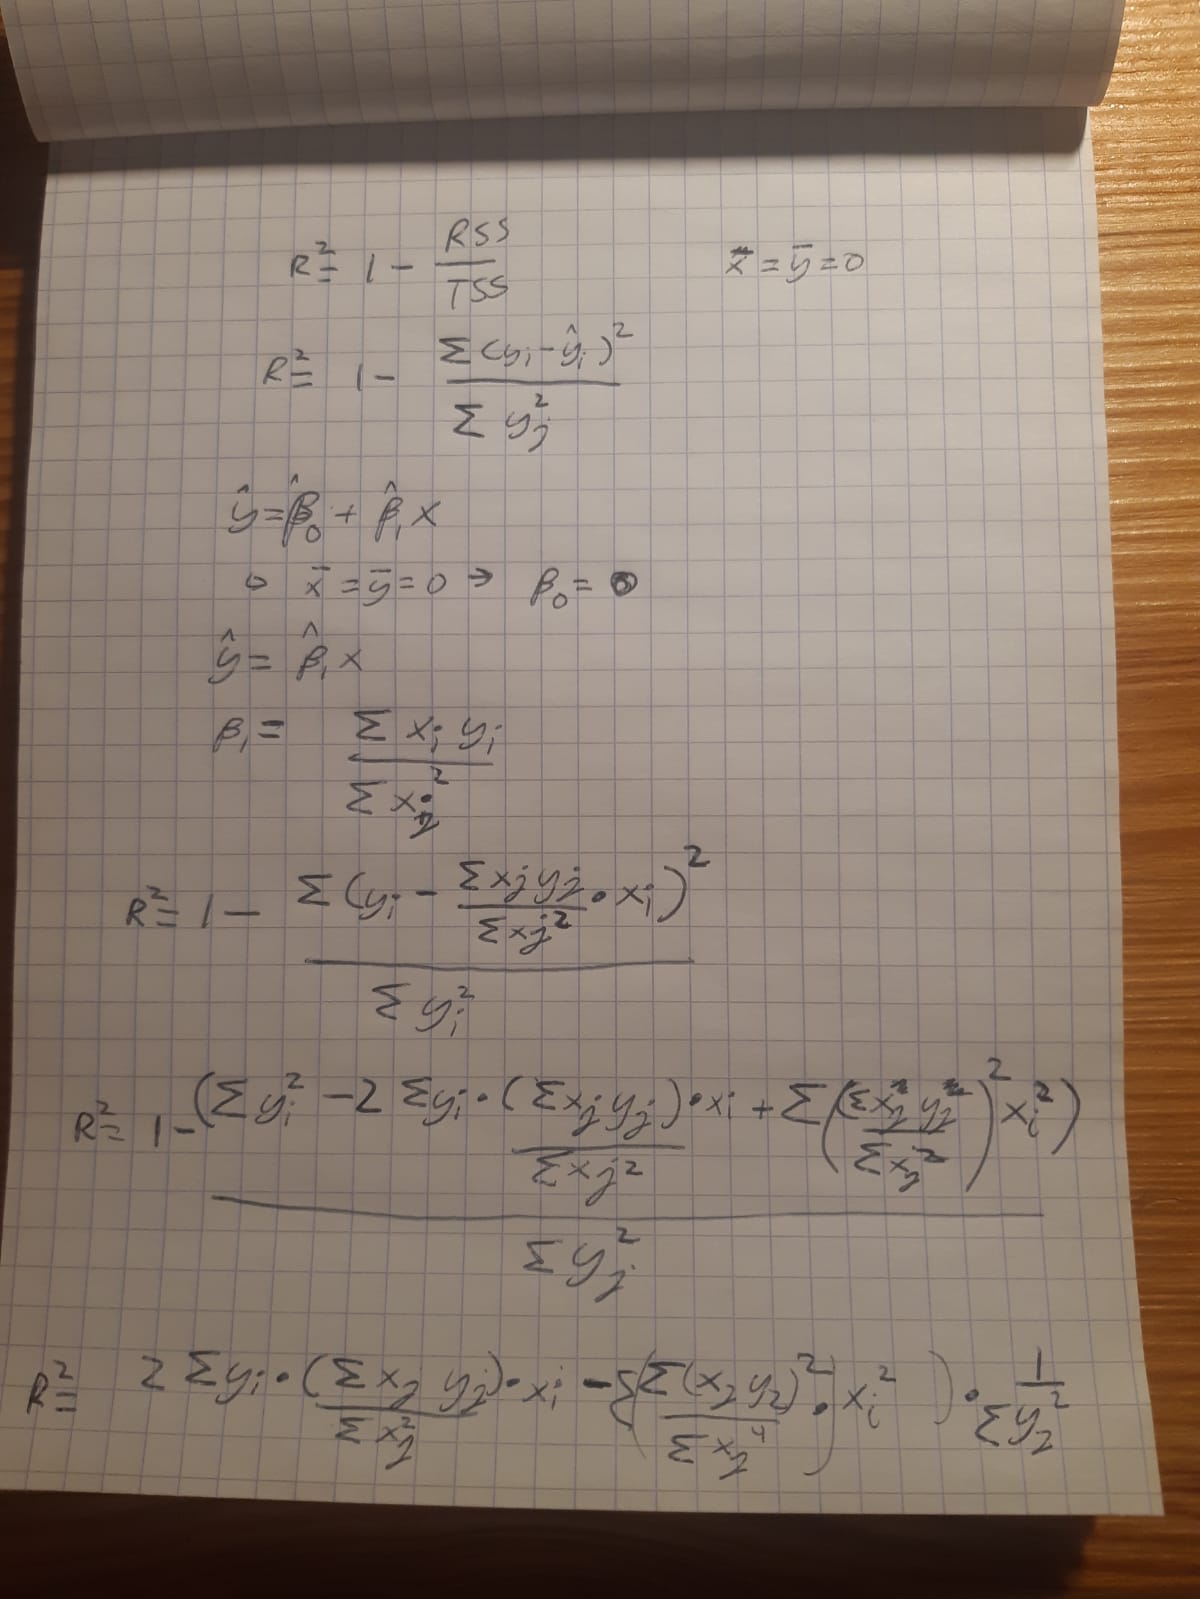 R² = 1 - RSS/TSS    x̄ = ȳ = 0
R² = 1 - Σ(yᵢ - ŷᵢ)² / Σ yⱼ²
ŷ = β̂₀ + β̂₁ x
x̄ = ȳ = 0 → β₀ = 0
ŷ = β̂₁ x
β₁ = Σ xᵢ yᵢ / Σ xⱼ²
R² = 1 - Σ(yᵢ - Σxⱼyⱼ/Σxⱼ² · xᵢ)² / Σ yᵢ²
R² = 1 - (Σ yᵢ² - 2 Σyᵢ · (Σxⱼyⱼ)/Σxⱼ² · xᵢ + Σ(Σxⱼyⱼ/Σxⱼ²)² xᵢ²) / Σ yⱼ²
R² = 2 Σyᵢ · (Σxⱼ yⱼ)/Σxⱼ² · xᵢ - Σ(Σ(xⱼyⱼ)²/Σxⱼ⁴) · xᵢ² ) · 1/Σyⱼ²